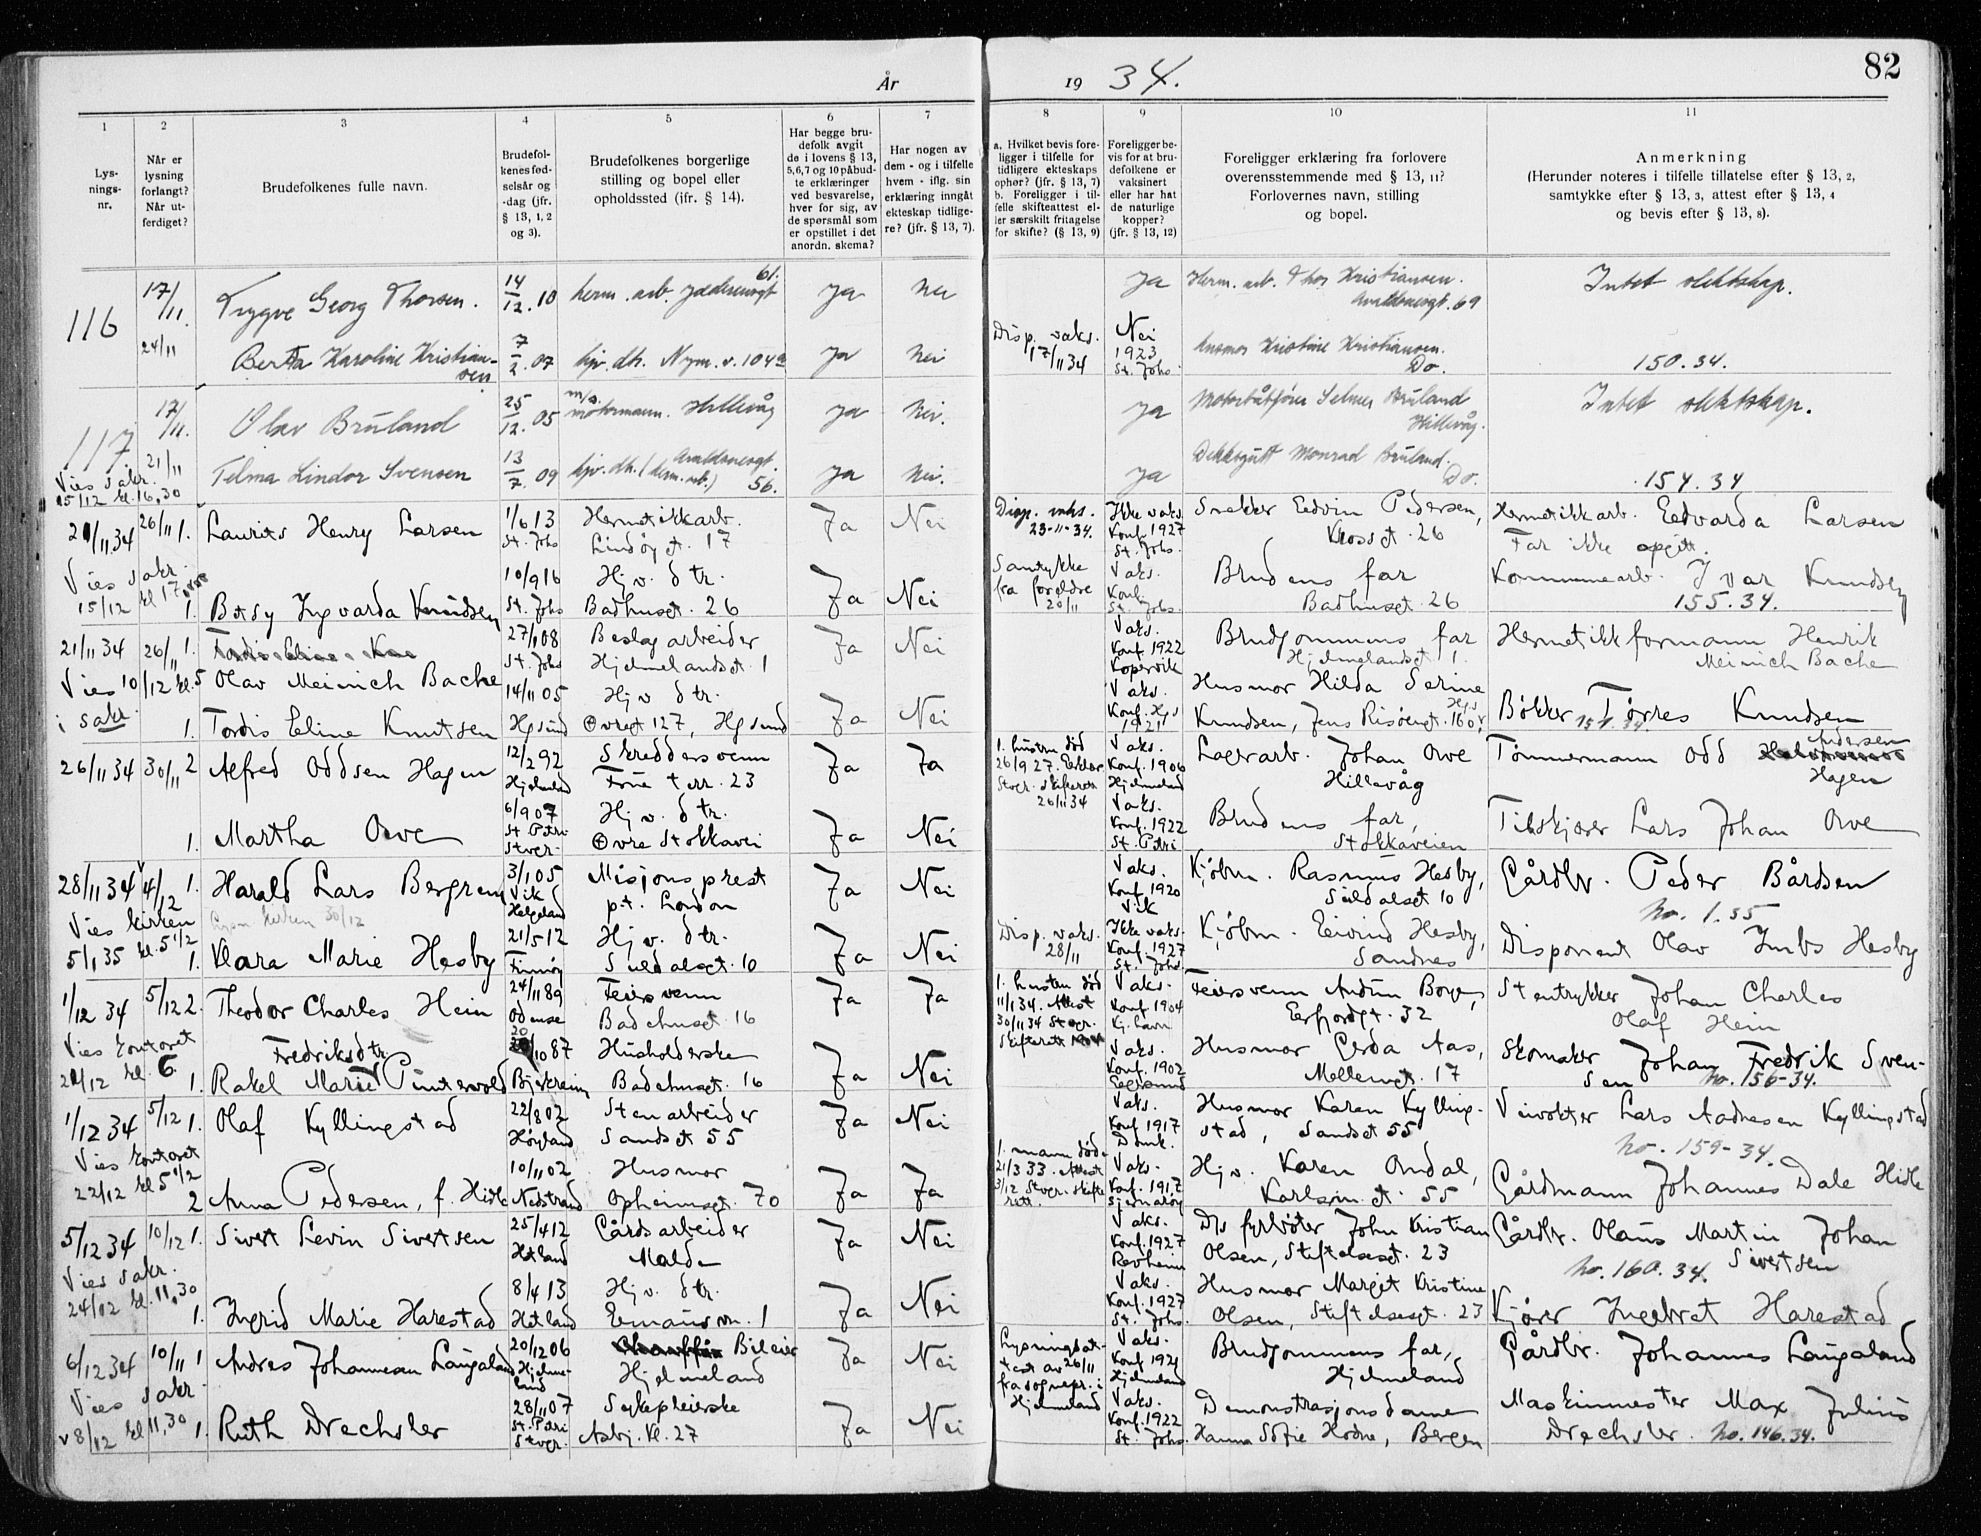 År 19 34.
82
1 2 3 4 5 6 7 8 9 10 11
Lys-
nings-
nr.
Når er
lysning
forlangt?
Når ut-
ferdiget?
Brudefolkenes fulle navn.
Brudefol-
kenes fød-
selsår og
-dag (jfr.
§ 13, 1, 2
og 3).
Brudefolkenes borgerlige
stilling og bopel eller
opholdssted (jfr. § 14).
Har begge bru-
defolk avgit
de i lovens § 13,
5,6,7 og 10 påbud-
te erklæringer
ved besvarelse,
hver for sig, av
de spørsmål som
er opstillet i det
anordn. skema?
Har nogen av
dem - og i tilfelle
hvem - iflg. sin
erklæring inngåt
ekteskap tidlige-
re? (jfr. § 13, 7).
a. Hvilket bevis fore-
ligger i tilfelle for
tidligere ekteskaps
ophør? (jfr. § 13, 7)
b. Foreligger i til-
felle skifteattest el-
ler særskilt fritagelse
for skifte? (§ 13, 9)
Foreligger be-
vis for at bru-
defolkene er
vaksinert
eller har hat
de naturlige
kopper?
(jfr. § 13, 12)
Foreligger erklæring fra forlovere
overensstemmende med § 13, 11?
Forlovernes navn, stilling
og bopel.
Anmerkning
(Herunder noteres i tilfelle tillatelse efter § 13, 2,
samtykke efter § 13, 3, attest efter § 13, 4
og bevis efter § 13, 8).
116 17/11. Trygve Georg Thorsen. 14/12.10 herm. arb. Jæderensgt 61. Ja Nei Ja Herm. arb. Thor Kristiansen.
Avaldsnesgt. 69 Intet slektskap.
24/11 Berta Karoline Kristian-
sen 7/2.07 hjv. dtr. Nym. v. 104a Ja Nei Disp. vaks.
17/11 34 Nei
1923
St. Johs. Husmor Kristine Kristiansen.
Do. 150.34.
117 17/11. Olav Bruland 25/12.05 m/a.
motormann. Hillevåg Ja Nei. Ja Motorbåtfører Selmer Bruland
Hillevåg. Intet slektskap.
21/11
Vies sakr.
15/12 kl. 16,30 Telma Lindor Svensen 13/7.09 hjv. dtr. (herm. arb.) Avaldsnesgt.
56. Ja Nei. Ja Dekksgutt Monrad Bruland.
Do. 154.34
21/11 34 26/11 1. Laurits Henry Larsen 1/6 13
St. Johs Hermetikkarb.
Lindøgt. 17 Ja Nei Disp. vaks.
23-11-34. Ikke vaks.
Konf. 1927
St. Johs. Snekker Edvin Pedersen,
Krosset. 26 Hermetikkarb. Edvarda Larsen
Far ikke opgitt.
Vies sakr.
15/12 kl 17, 1. Betsy Ingvarda Knudsen 10/9 16
St. Johs Hjv. dtr.
Badhuset. 26 Ja Nei Samtykke
fra foreldre
20/11 Vaks.
Konf.
St. Johs. Brudens far
Badhuset. 26 Kommunearb. Ivar Knudsen
155.34.
21/11 34 26/11 1. Olav Meinich Bache 27/1 08
St. Johs Beslagarbeider
Hjelmelandsgt. 1 Ja Nei Vaks.
Konf. 1922
Kopervik Brudgommens far
Hjelmelandsgt 1. Hermetikkformann Henrik
Meinich Bache
Vies 10/12 kl. 5
i sakr. 1. Tordis Eline Knutsen 14/11 05
Hgsund Hjv. dtr.
Øvregt 127, Hgsund Ja Nei Vaks.
Konf. Hgs
1921 Husmor Hilda Serine
Knudsen, Jens Risøengt. 160, Hgs. Bøkker Torres Knudsen
151.34.
26/11 34 30/11 2 Alfred Oddsen Hagen 12/2 92
Hjelmeland Skreddersvenn
Frue terr. 23 Ja Ja 1. hustru död
26/9 27.
Stvgr. skifterett
26/11 34 Vaks.
Konf. 1906
Hjelmeland Lagerarb. Johan Orve
Hillevåg Tømmermann Odd Andersen
Hagen
1. Martha Orve 6/9 07
St. Petri
Stvgr. Hjv. dtr.
Øvre Stokkavei Ja Nei Vaks.
Konf. 1922
St. Petri Brudens far,
Stokkaveien Tilskjærer Lars Johan Orve
28/11 34 4/12 1. Harald Lars Bergrem 3/1 05
Vik
Helgeland Misjonsprest
p.t. London Ja Nei Vaks.
Konf. 1920
Vik Kjøbm. Rasmus Hesby,
Suldalsgt 10 Gårdbr. Peder Bårdsen
No. 1.35
Vies kirken
5/1 35 kl. 5 1/2 1. Klara Marie Hesby 21/5 12
Finnøy Hjv. dtr.
Suldalsgt. 10 Ja Nei Disp. vaks.
28/11 Ikke vaks.
Konf. 1927
St. Johs. Kjøbm. Eivind Hesby,
Sandnes Disponent Olav Imbs Hesby
1/12 34 5/12 2. Theodor Charles Hein 24/11 89
Odense Feiersvenn
Badehuset. 16 Ja Ja 1. hustru död
11/1 34. Attest
30/11 34 Stvgr.
Skifterett Vaks.
Konf. 1904
Kj. havn Feiersvenn Andun Boye,
Eerfjordgt. 32 Stentrykker Johan Charles
Olaf Hein
Vies kontoret
21/12 kl. 6 1. Rakel Marie Fredriksdtr. Puntervold 20/10 87
Bjerkreim Husholderske
Badehuset. 16 Ja Nei Vaks.
Konf. 1902
Egersund Husmor Gerda Aas,
Møllergt. 17 Skomaker Johan Fredrik Sven-
sen No. 156-34.
1/12 34 5/12 1. Olaf Kyllingstad 22/8 02
Høyland Stenarbeider
Sandsgt 55 Ja Nei Vaks.
Konf. 1917
Domk. Husmor Karen Kylling-
stad, Sandsgt 55 Veivokter Lars Aadnesen Kyllingstad
No. 159-34.
Vies kontoret
22/12 kl 5 1/2 2 Anna Pedersen, f. Hidle 10/11 02
Nedstrand Husmor
Opheimsgt. 70 Ja Ja 1. mann död
21/3 33. Attest
3/12 Stvgr. skifte
rett. Vaks.
Konf. 1917
Sjernarøy Hjv. Karen Omdal,
Karlsm. gt. 55 Gårdmann Johannes Dale Hidle
5/12 34 10/12 1. Sivert Levin Sivertsen 25/4 12
Hetland Gårdsarbeider
Malde Ja Nei Vaks.
Konf. 1927
Revheim D/s fyrbøter John Kristian
Olsen, Stiftelsesgt. 23 Gårdbr. Olaus Martin Johan
Sivertsen
No. 160.34.
Vies sakr.
24/12 kl. 11,30 1. Ingrid Marie Harestad 8/4 13
Hetland Hjv. dtr.
Emausvn. 1 Ja Nei Vaks.
Konf. 1927
St. Johs. Husmor Margit Kristine
Olsen, Stiftelsesgt. 23 Kjører Ingebret Harestad
6/12 34 10/11 1 Andres Johannesen Laugaland 20/12 06
Hjelme-
land Bileier
Hjelmeland Ja Nei Lysningsat-
test av 26/11
fra sognepr. i
Hjelmeland Vaks.
Konf. 1921
Hjelmeland Brudgommens far,
Hjelmeland Gårdbr. Johannes Laugaland
Vies sakr.
8/12 kl 11,30 1. Ruth Drechsler 28/11 07
St. Petri
Stvgr. Sykepleierske
Asbj. Kl. 27 Ja Nei Vaks.
Konf. 1922
St. Johs. Demonstrasjonsdame
Hanna Sofie Hodne, Bergen Maskinmester Max Julius
Drechsler. No. 146.34.